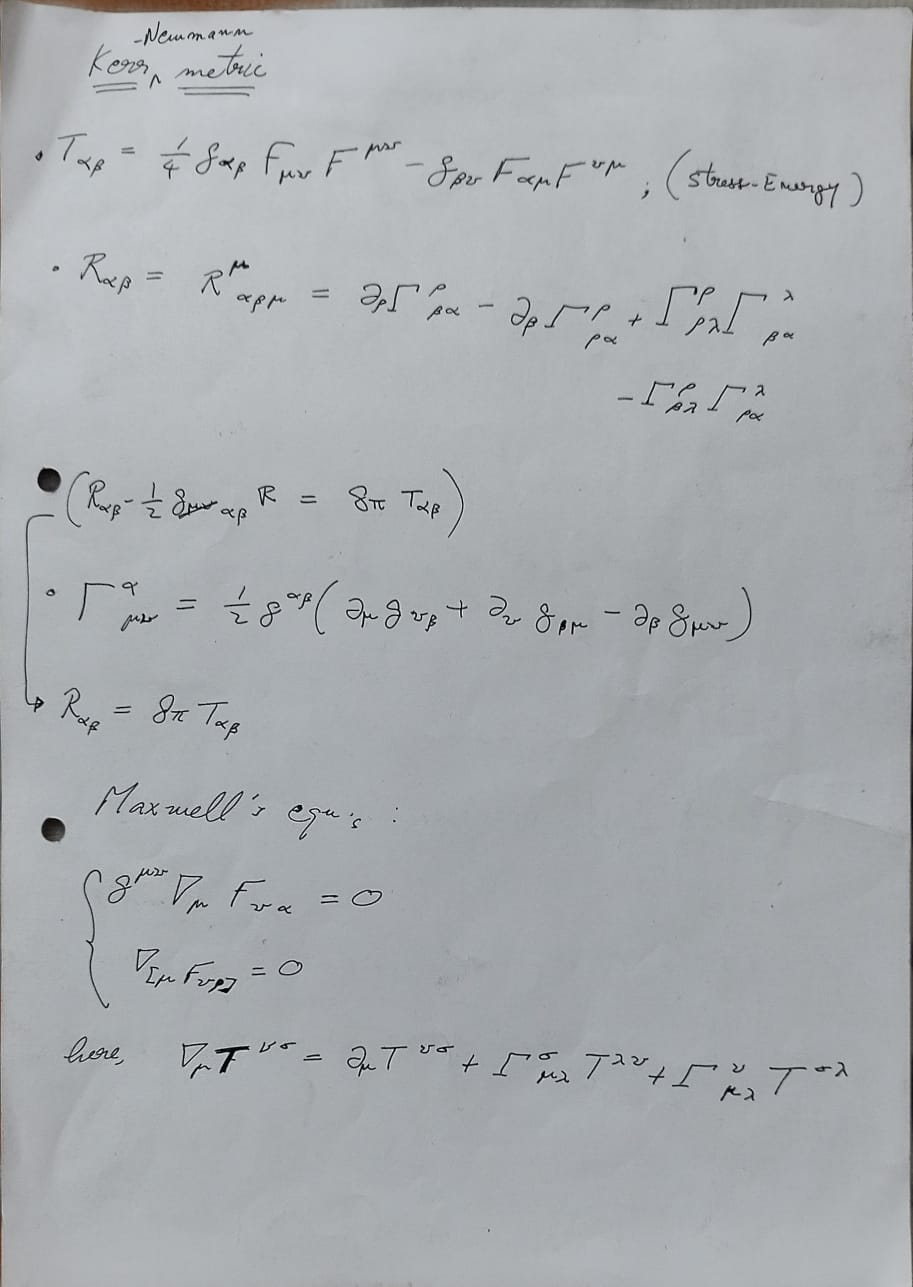 -Newmann
Kerr ^ metric
• T_{αβ} = 1/4 g_{αβ} F_{μν} F^{μν} - g_{βν} F_{αμ} F^{νμ} ; (Stress-Energy)
• R_{αβ} = R^{μ}_{αβμ} = ∂_ρ Γ^{ρ}_{βα} - ∂_β Γ^{ρ}_{ρα} + Γ^{ρ}_{ρλ} Γ^{λ}_{βα}
- Γ^{ρ}_{βλ} Γ^{λ}_{ρα}
(R_{αβ} - 1/2 g_{αβ} R = 8π T_{αβ})
• Γ^{α}_{μν} = 1/2 g^{αβ} (∂_μ g_{νβ} + ∂_ν g_{βμ} - ∂_β g_{μν})
→ R_{αβ} = 8π T_{αβ}
Maxwell's equ's :
{ g^{μν} ∇_μ F_{να} = 0
∇_{[μ} F_{νρ]} = 0
here, ∇_μ T^{νσ} = ∂_μ T^{νσ} + Γ^{σ}_{μλ} T^{λν} + Γ^{ν}_{μλ} T^{σλ}